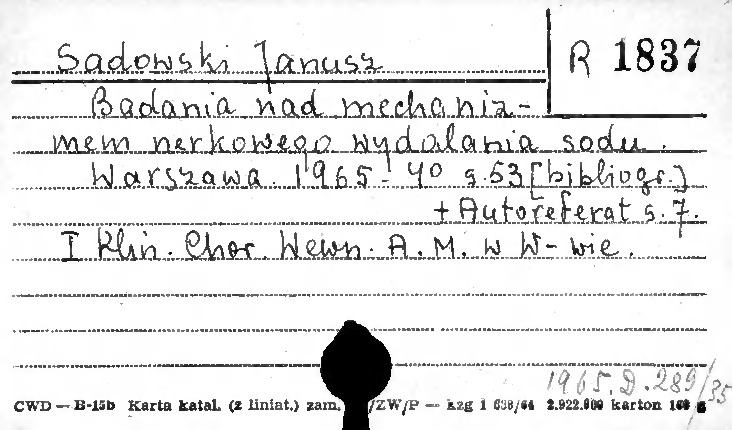 Sadowski Janusz
R 1837
Badania nad mechaniz-
mem nerkowego wydalania sodu.
Warszawa. 1965. 4° s. 53 [bibliogr.]
+ Autoreferat s. 7.
I Klin. Chor. Wewn. A. M. w W-wie.
1965. D. 289/35
CWD — B-15b Karta katal. (z liniat.) zam. /ZW/P — kzg 1 638/64 2.922.000 karton g